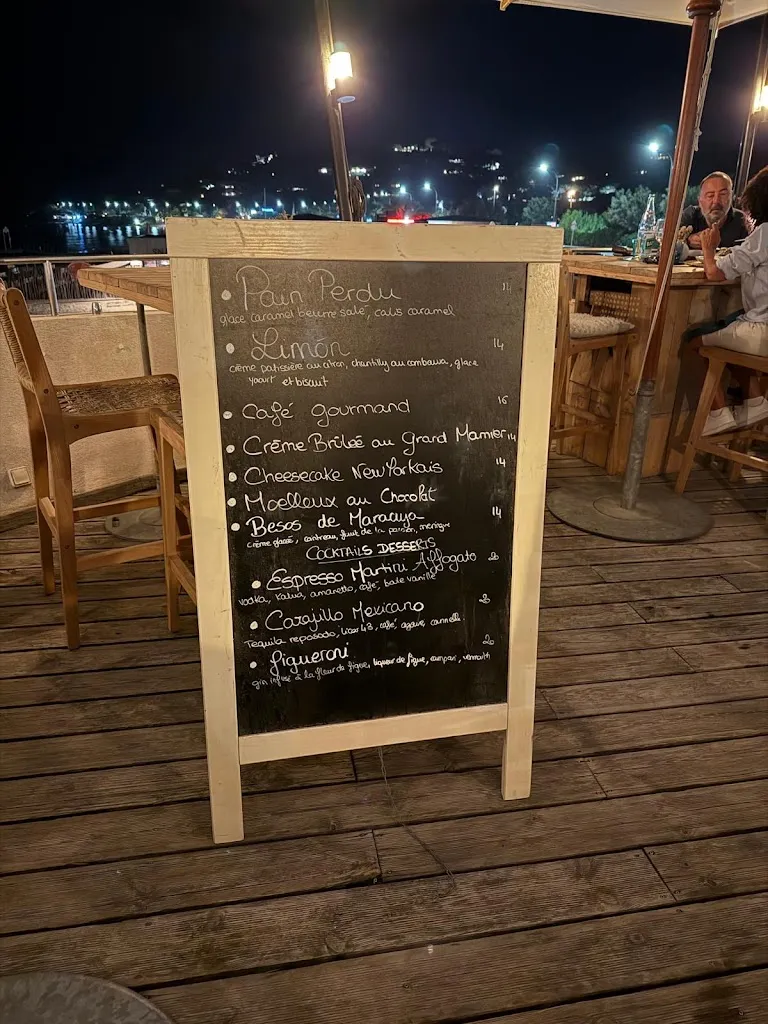 Pain Perdu 14
glace caramel beurre salé, calis caramel
Limon 14
crème patissière au citron, chantilly au combawa, glace
yaourt et biscuit
Café gourmand 16
Crème Brûlée au Grand Marnier 14
Cheesecake New Yorkais 14
Moelleux au Chocolat
Besos de Maracuya 14
crème glacé, cointreau, fruit de la passion, meringue
COCKTAILS DESSERTS
Espresso Martini Affogato 20
vodka, Kalua, amaretto, café, boule vanille
Carajillo Mexicano 20
Tequila reposado, licor 43, café, agave, cannelle
Figueroni 20
gin infusé à la fleur de figue, liqueur de figue, campari, vermouth